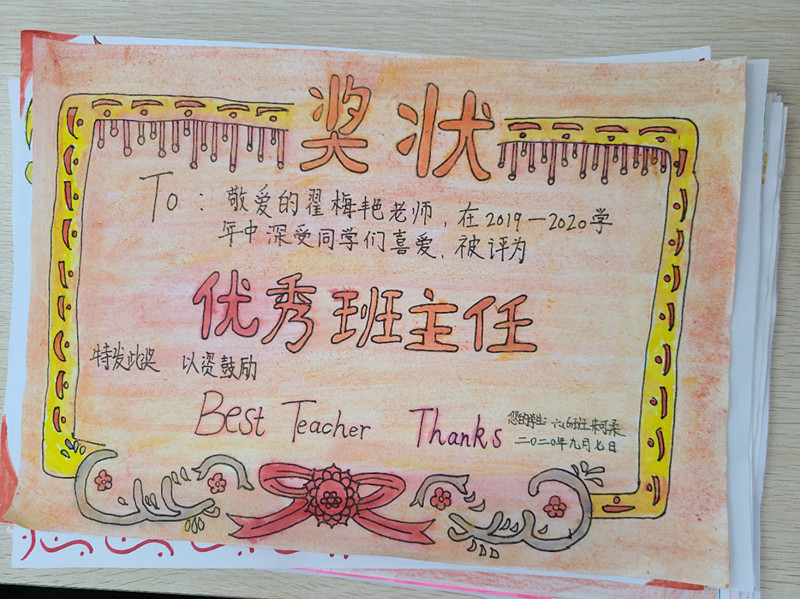 奖状
To：敬爱的翟梅艳老师，在2019—2020学
年中深受同学们喜爱，被评为
优秀班主任
特发此奖 以资鼓励
Best Teacher Thanks
您的学生：六(6)班
二〇二〇年九月七日